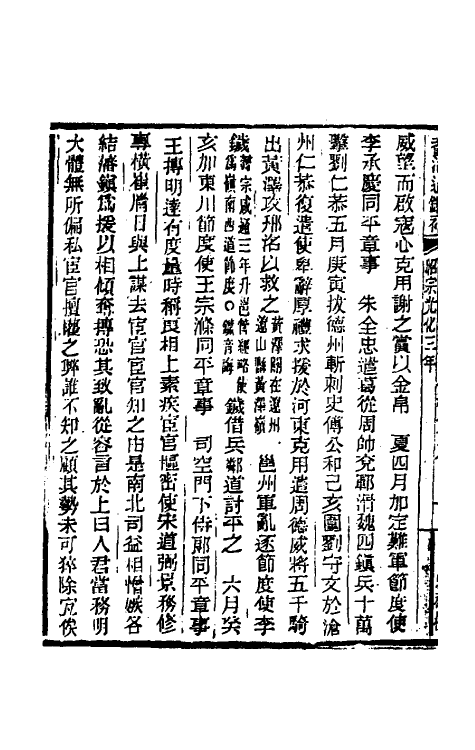 資治通鑑補 昭宗光化三年
威望而啟寇心克用謝之賞以金帛 夏四月加定難軍節度使
李承慶同平章事 朱全忠遣葛從周帥兗鄆滑魏四鎮兵十萬
擊劉仁恭五月庚寅拔德州斬刺史傅公和己亥圍劉守文於滄
州仁恭復遣使卑辭厚禮求援於河東克用遣周德威將五千騎
出黃澤攻邢洺以救之黃澤關在遼州遼山縣黃澤嶺 邕州軍亂逐節度使李
鐬宗咸通三年升邕管經略使爲嶺南西道節度〇鐬音誨 鐬借兵鄰道討平之 六月癸
亥加東川節度使王宗滌同平章事 司空門下侍郎同平章事
王摶明達有度量時稱良相上素疾宦官樞密使宋道弼景務修
專橫崔胤日與上謀去宦官宦官知之由是南北司益相憎嫉各
結藩鎮爲援以相傾奪摶恐其致亂從容言於上曰人君當務明
大體無所偏私宦官擅權之弊誰不知之顧其勢未可猝除宜俟